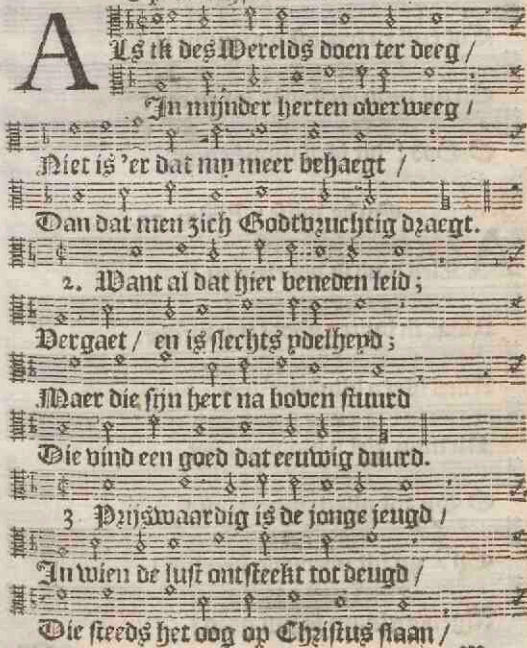 ALs ik des Werelds doen ter deeg /
In mijnder herten overweeg /
Niet is 'er dat my meer behaegt /
Dan dat men zich Godtvruchtig draegt.
2. Want al dat hier beneden leid;
Vergaet / en is slechts ydelheyd;
Maer die sijn hert na boven stuurd
Die vind een goed dat eeuwig duurd.
3 Prijswaardig is de jonge jeugd /
In wien de lust ontsteekt tot deugd /
Die steeds het oog op Christus slaan /